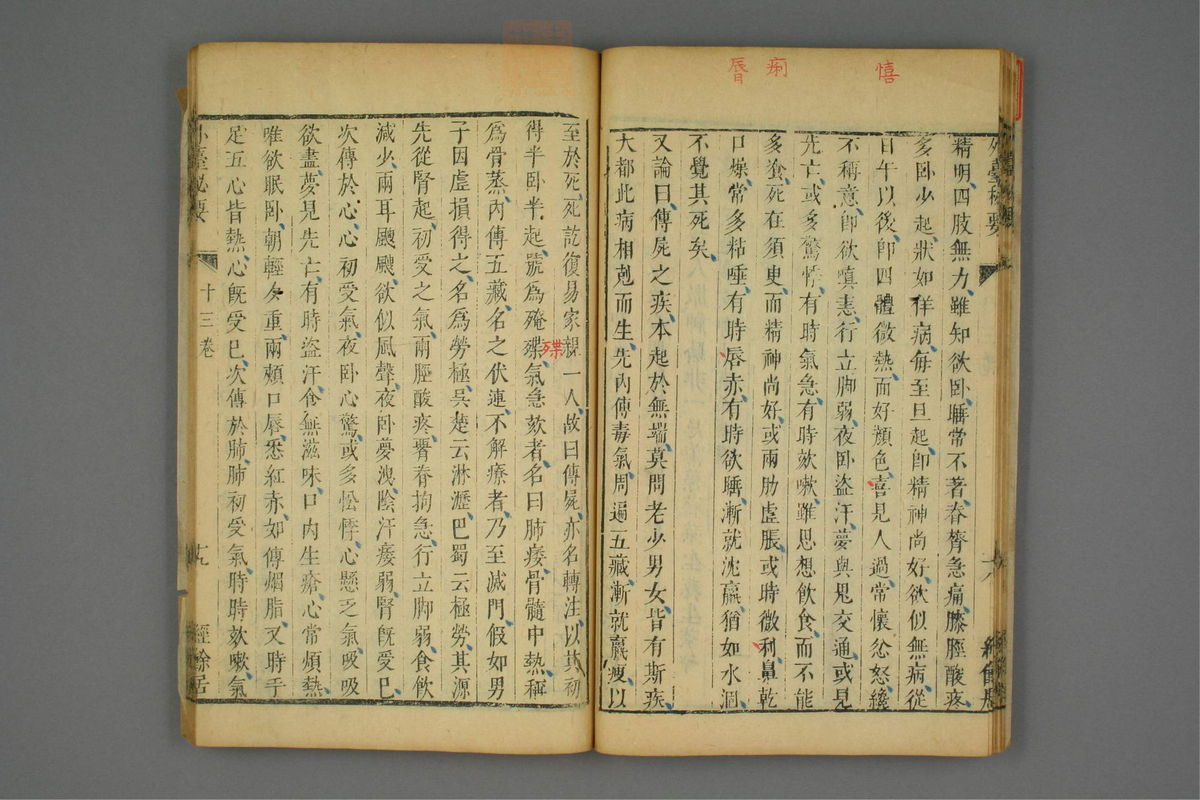 唇 痢 憘
外臺秘要
精明四肢無力雖知欲卧睡常不著脊膂急痛膝脛酸疼
多卧少起狀如佯病每至旦起卽精神尚好欲似無病從
日午以後卽四體微熱面好顏色喜見人過常懷忿怒纔
不稱意卽欲嗔恚行立脚弱夜卧盜汗夢與鬼交通或見
先亡或多驚悸有時氣急有時欬嗽雖思想飲食而不能
多飡死在須臾而精神尚好或兩肋虛脹或時微利鼻乾
口燥常多粘唾有時唇赤有時欲睡漸就沈羸猶如水涸
不覺其死矣
又論曰傳屍之疾本起於無端莫問老少男女皆有斯疾
大都此病相剋而生先內傳毒氣周遍五藏漸就羸瘦以
至於死死訖復易家親一人故曰傳屍亦名轉注以其初
得半卧半起號爲殗殜氣急欬者名曰肺痿骨髓中熱稱
殜
爲骨蒸內傳五藏名之伏連不解療者乃至滅門假如男
子因虛損得之名爲勞極吳楚云淋瀝巴蜀云極勞其源
先從腎起初受之氣兩脛酸疼腰脊拘急行立脚弱食飲
減少兩耳颼颼欲似風聲夜卧夢洩陰汗痿弱腎旣受已
次傳於心心初受氣夜卧心驚或多忪悸心懸乏氣吸吸
欲盡夢見先亡有時盜汗食無滋味口內生瘡心常煩熱
唯欲眠卧朝輕夕重兩頰口唇悉紅赤如傅烟脂又時手
足五心皆熱心旣受已次傳於肺肺初受氣時時欬嗽氣
外臺秘要
十三卷
十九
經餘居